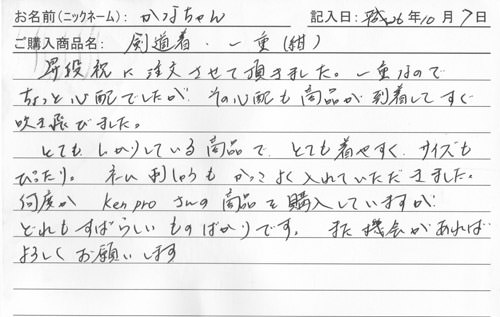 お名前(ニックネーム): かなちゃん 記入日: 平成26年10月7日
ご購入商品名: 剣道着・一重(紺)
昇段祝に注文させて頂きました。一重なので
ちょっと心配でしたが、その心配も商品が到着してすぐ
吹き飛びました。
とても、しっかりしている商品で、とても着やすく、サイズも
ぴったり。ネーム刺しゅうもかっこよく入れていただきました。
何度か Ken proさんの商品を購入していますが、
どれもすばらしいものばかりです。また機会があれば
よろしくお願いします